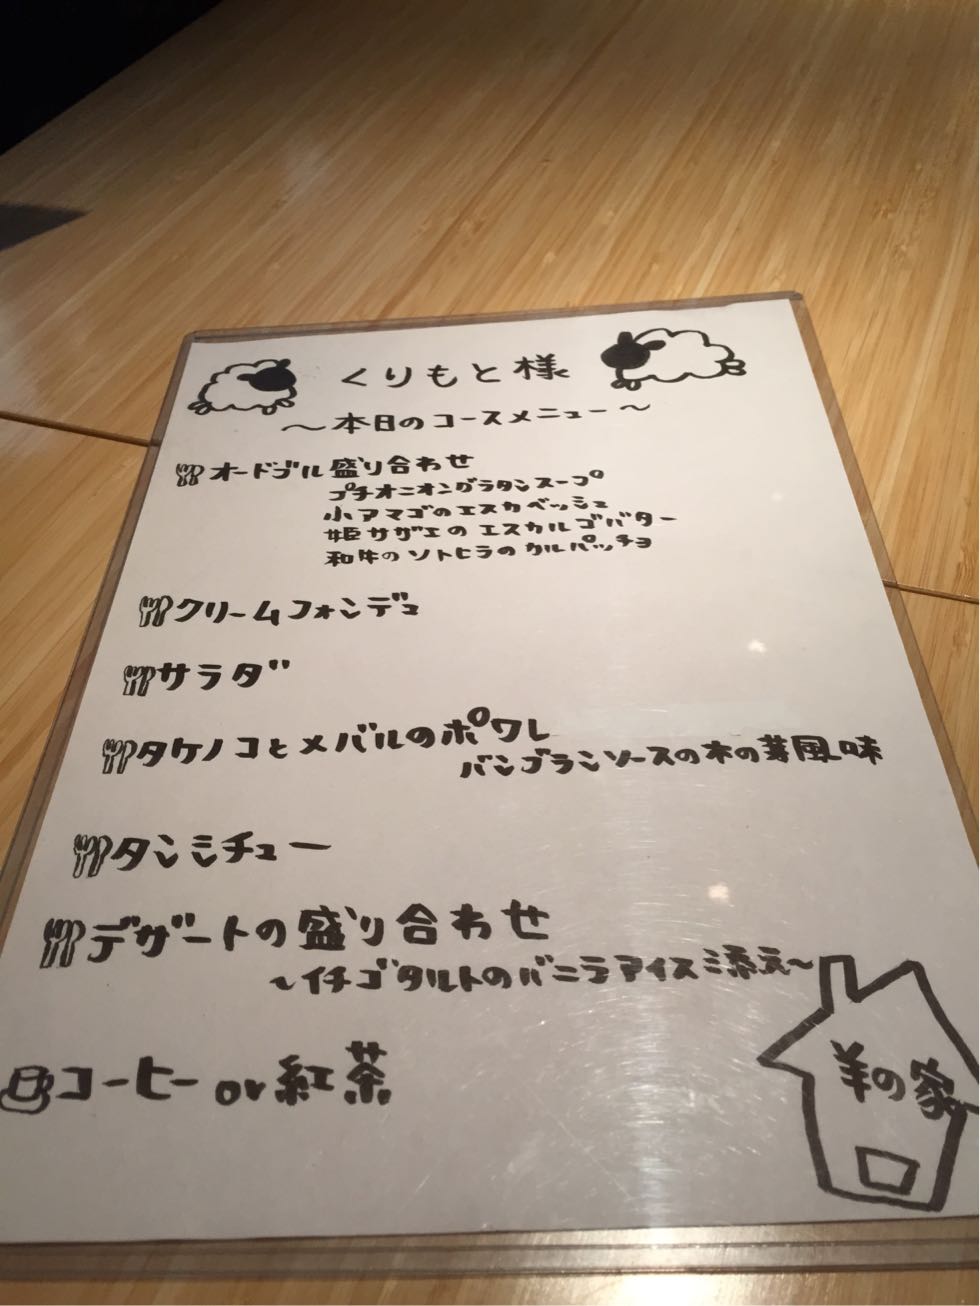 くりもと様
～本日のコースメニュー～
オードブル盛り合わせ
プチオニオングラタンスープ
小アマゴのエスカベッシュ
姫サザエのエスカルゴバター
和牛のソトヒラのカルパッチョ
クリームフォンデュ
サラダ
タケノコとメバルのポワレ
バンブランソースの木の芽風味
タンシチュー
デザートの盛り合わせ
～イチゴタルトのバニラアイス添え～
コーヒーor紅茶
羊の家